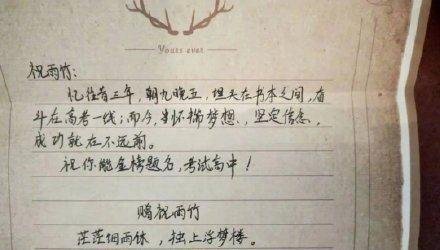 Yours ever
祝雨竹:
忆往昔三年,朝九晚五,埋头在书本之间,奋
斗在高考一线;而今,生怀揣梦想、坚定信念,
成功就在不远前。
祝你能金榜题名,考试高中!
赠祝雨竹
茫茫烟雨休,独上浮梦楼。